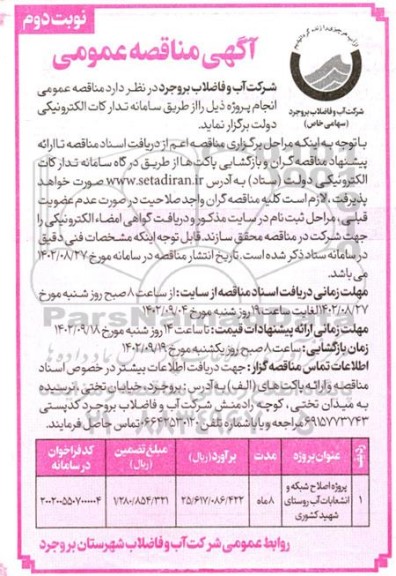 نوبت دوم
آگهی مناقصه عمومی
شرکت آب و فاضلاب بروجرد
(سهامی خاص)
شرکت آب و فاضلاب بروجرد در نظر دارد مناقصه عمومی
انجام پروژه ذیل را از طریق سامانه تدارکات الکترونیکی
دولت برگزار نماید.
با توجه به اینکه مراحل برگزاری مناقصه اعم از دریافت اسناد مناقصه تا ارائه
پیشنهاد مناقصه گران و بازگشایی پاکت ها از طریق درگاه سامانه تدارکات
الکترونیکی دولت (ستاد) به آدرس www.setadiran.ir صورت خواهد
پذیرفت، لازم است کلیه مناقصه گران واجد صلاحیت در صورت عدم عضویت
قبلی، مراحل ثبت نام در سایت مذکور و دریافت گواهی امضاء الکترونیکی را
جهت شرکت در مناقصه محقق سازند. قابل توجه اینکه مشخصات فنی دقیق
در سامانه ستاد ذکر شده است. تاریخ انتشار مناقصه در سامانه مورخ ۱۴۰۲/۰۸/۲۷
می باشد.
مهلت زمانی دریافت اسناد مناقصه از سایت: از ساعت ۸ صبح روز شنبه مورخ
۱۴۰۲/۰۸/۲۷ لغایت ساعت ۱۹ روز شنبه مورخ ۱۴۰۲/۰۹/۰۴
مهلت زمانی ارائه پیشنهادات قیمت: تا ساعت ۱۴ روز شنبه مورخ ۱۴۰۲/۰۹/۱۸
زمان بازگشایی: ساعت ۸ صبح روز یکشنبه مورخ ۱۴۰۲/۰۹/۱۹
اطلاعات تماس مناقصه گزار: جهت دریافت اطلاعات بیشتر در خصوص اسناد
مناقصه و ارائه پاکت های (الف) به آدرس: بروجرد، خیابان تختی، نرسیده
به میدان تختی، کوچه رادمنش شرکت آب و فاضلاب بروجرد کدپستی
۶۹۱۵۷۷۳۷۴۳ مراجعه و یا با شماره تلفن: ۰۶۶۴۲۵۳۰۱۲۰ تماس حاصل فرمایند.
ردیف عنوان پروژه مدت برآورد (ریال) مبلغ تضمین (ریال) کد فراخوان در سامانه
۱ پروژه اصلاح شبکه و انشعابات آب روستای شهید کشوری ۸ ماه ۲۵/۶۱۷/۰۸۶/۴۲۲ ۱/۲۸۰/۸۵۴/۳۲۱ ۲۰۰۲۰۰۵۵۰۷۰۰۰۰۰۴
روابط عمومی شرکت آب و فاضلاب شهرستان بروجرد